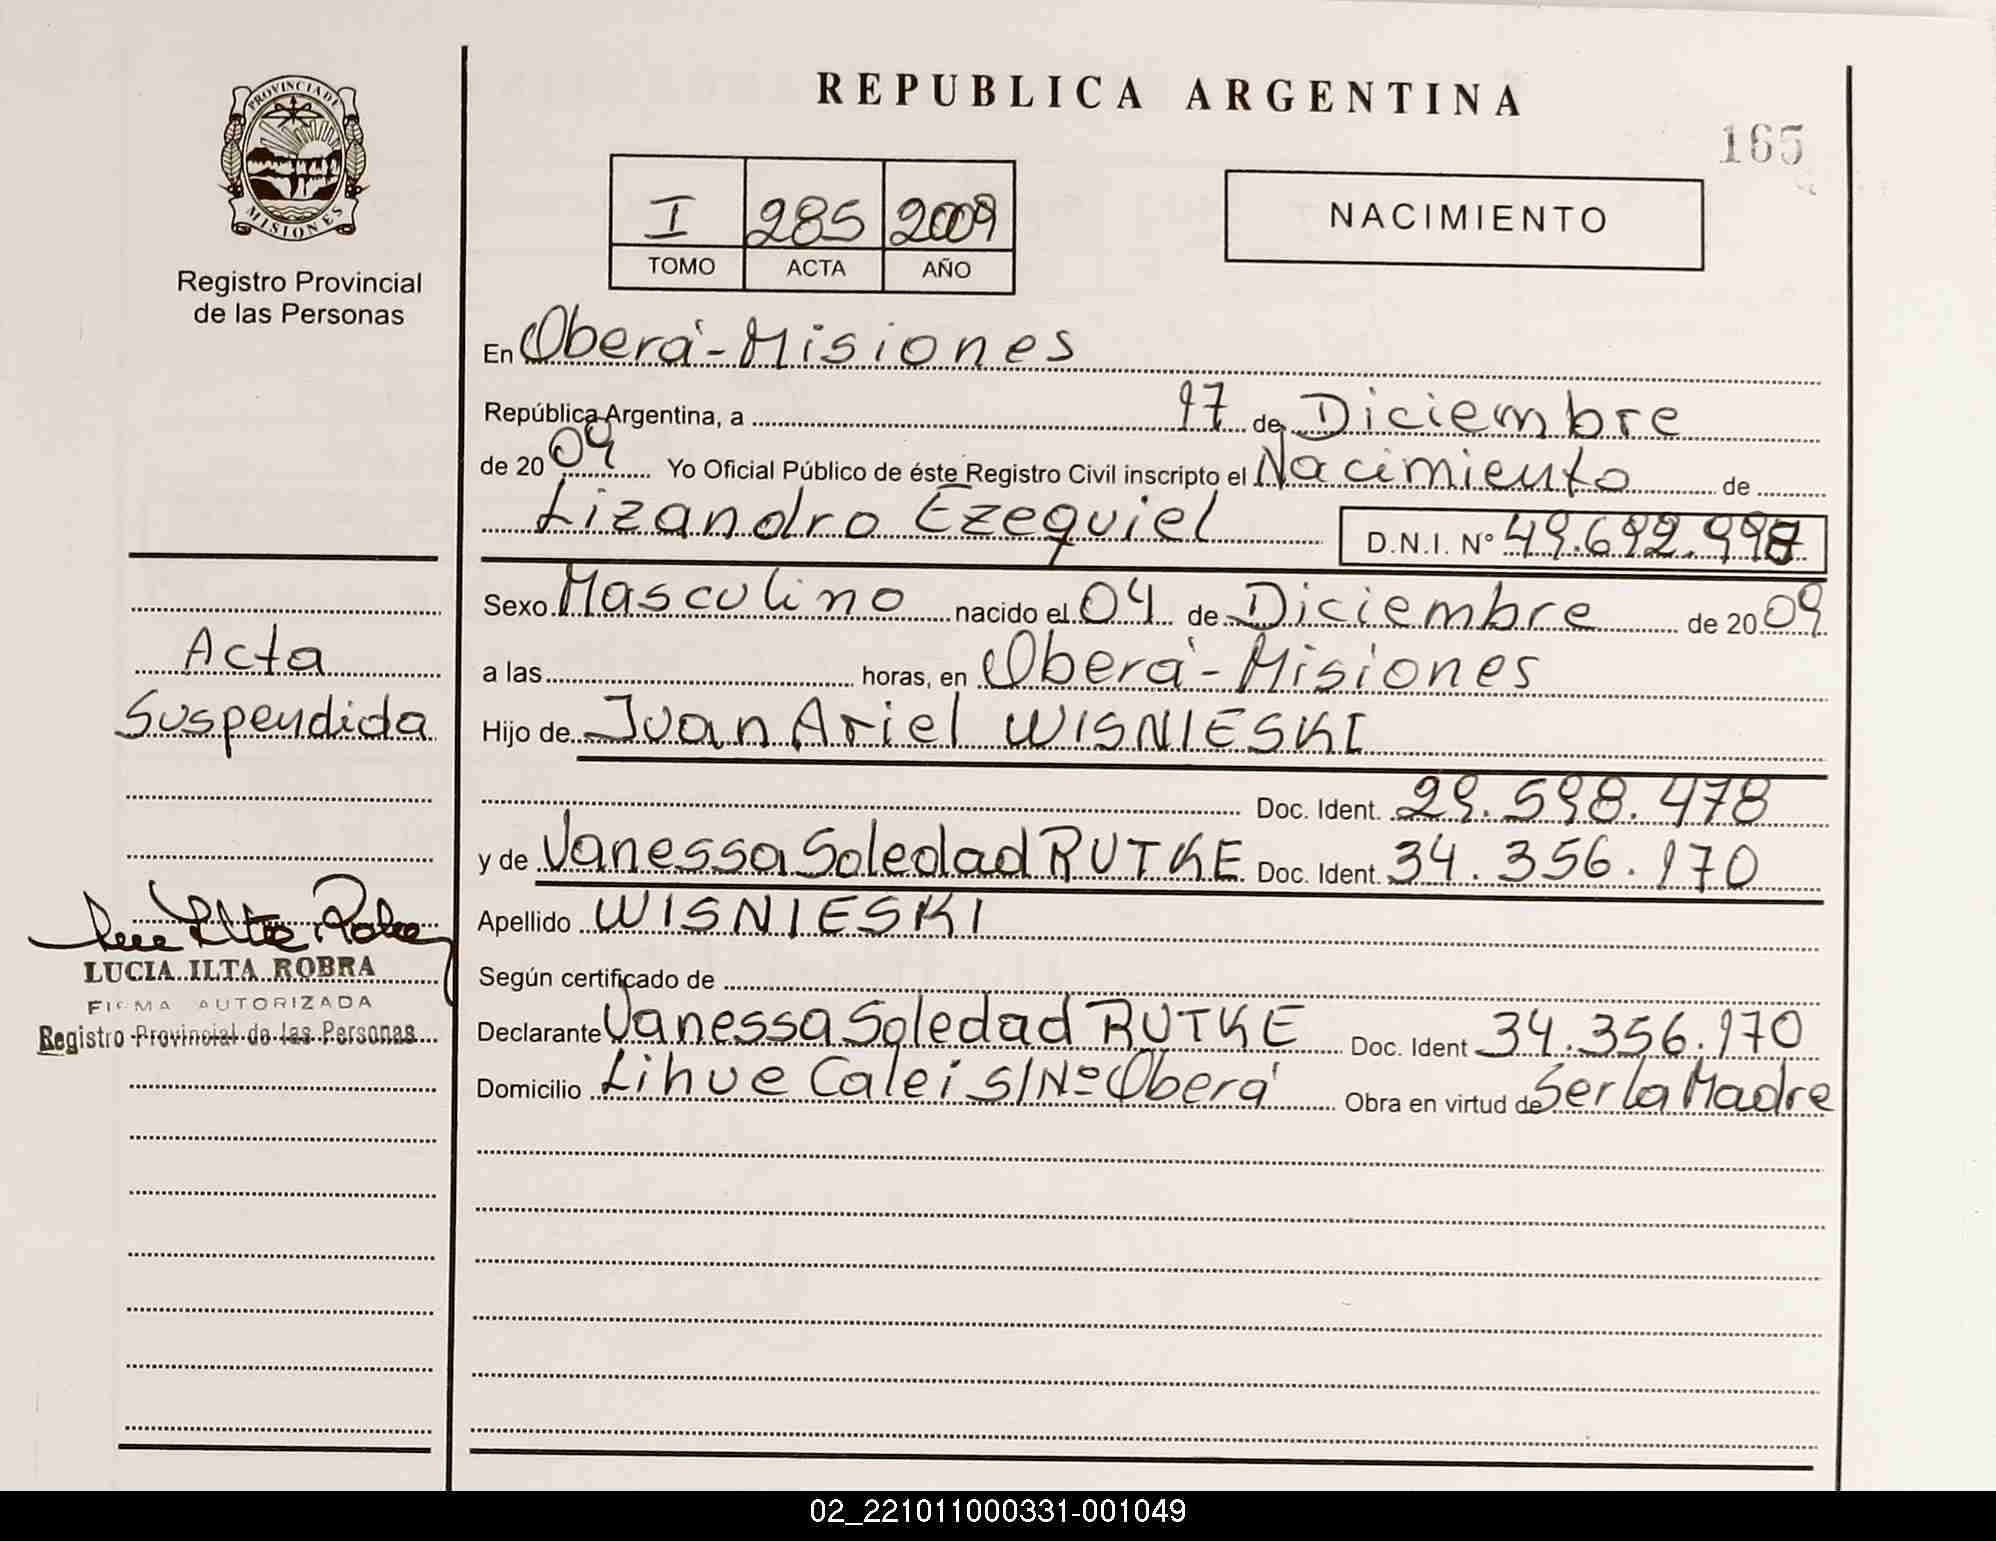 REPUBLICA ARGENTINA
165
PROVINCIA DE
MISIONES
Registro Provincial
de las Personas
I 285 2009
TOMO ACTA AÑO
NACIMIENTO
En Oberá - Misiones
República Argentina, a 17 de Diciembre
de 2009 Yo Oficial Público de éste Registro Civil inscripto el Nacimiento de
Lizandro Ezequiel D.N.I. Nº
Sexo Masculino nacido el 04 de Diciembre de 2009
a las horas, en Oberá - Misiones
Hijo de Juan Ariel WISNIESKI
Doc. Ident. 29.598.478
y de Vanessa Soledad RUTKE Doc. Ident. 34.356.170
Apellido WISNIESKI
Según certificado de
Declarante Vanessa Soledad RUTKE Doc. Ident 34.356.170
Domicilio Lihue Calei S/Nº Oberá Obra en virtud de Ser la Madre
Acta
Suspendida
LUCIA ILTA ROBRA
FIRMA AUTORIZADA
Registro Provincial de las Personas
02_221011000331-001049